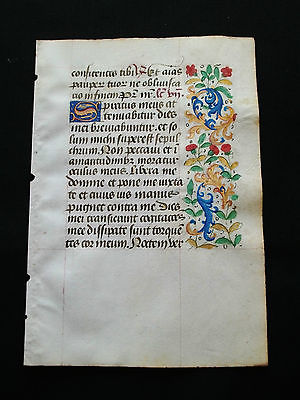 confitentes tibi. Et aīas
pauperū tuorū ne obliuisca
in finem Pr̄ nr̄. vii
Spiritus meus at
tenuabitur dies
mei breuiabuntur. et so
lum michi superest sepul
chrum. Non peccaui et i
amaritudinibꝫ moratur
oculus meus. Libera me
domine et pone me iuxta
te et cuius uis manus
pugnet contra me. Dies
mei transierunt cogitacōes
mee dissipate sunt torquē
tes cor meum. Noctem ver